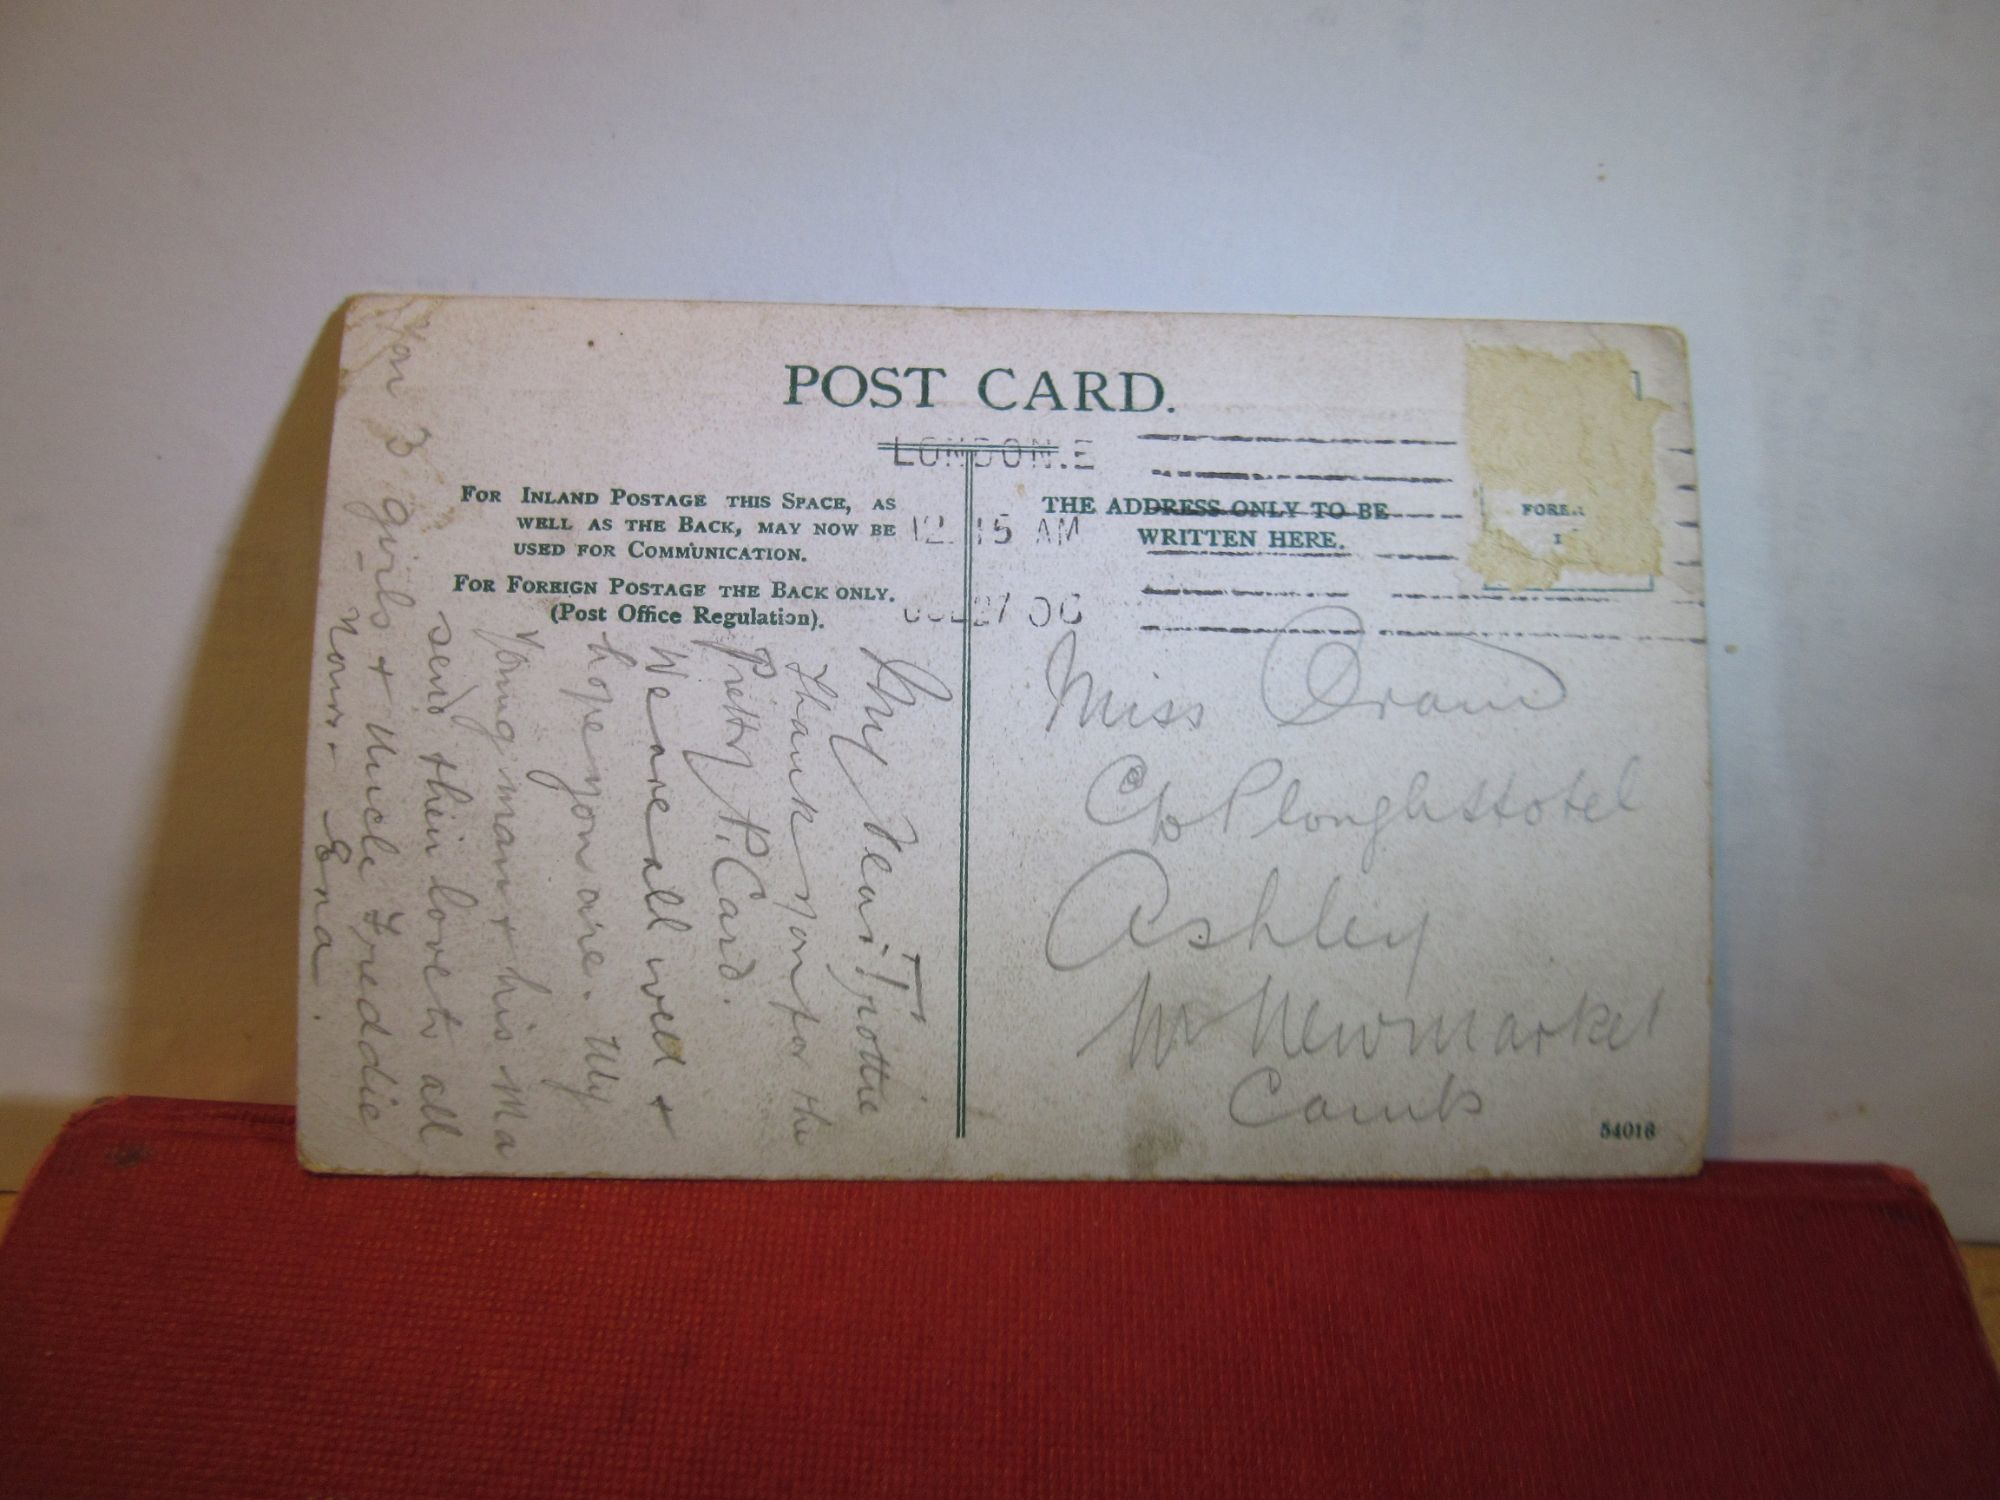 POST CARD.
LONDON.E
12.15 AM
27
FOR INLAND POSTAGE THIS SPACE, AS
WELL AS THE BACK, MAY NOW BE
USED FOR COMMUNICATION.
FOR FOREIGN POSTAGE THE BACK ONLY.
(Post Office Regulation).
THE ADDRESS ONLY TO BE
WRITTEN HERE.
My Dear Trottie
Thank you for the
Pretty P. Card.
We are all well +
hope you are. My
Young man + his Ma
send their love to all
You 3 girls + Uncle Freddie
Yours - Ena.
Miss
C/o Plough Hotel
Ashley
Nr Newmarket
Cambs
54016